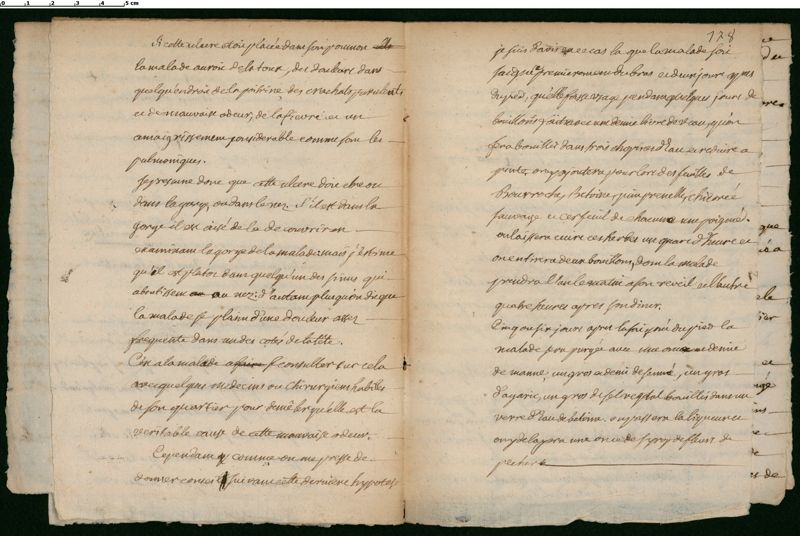 Si cette ulcere etoit placée dans son poumon
la malade auroit de la toux, des douleurs dans
quelqu'endroit de la poitrine, des crachats purulents
et de mauvaise odeur, de la fievre et un
amaigrissement considerable comme sont les
pulmoniques.
Je presume donc que cette ulcere doit etre ou
dans la gorge, ou dans le nez. S'il est dans la
gorge il est aisé de la decouvrir en
examinant la gorge de la malade mais j'estime
qu'il est plutot dans quelqu'un des sinus qui
aboutissent au nez: d'autant plus qu'on dit que
la malade se plaint d'une douleur assez
frequente dans un des cotés de la tête.
C'est a la malade a se consulter sur cela
avec quelques medecins ou chirurgiens habiles
de son quartier pour demêler quelle est la
veritable cause de cette mauvaise odeur.
Cependant comme on me presse de
donner conseil suivant cette derniere hypotese
128
je suis d'avis en ce cas la que la malade soit
saignée premierement du bras et d'un jour apres
du pied, qu'elle fasse usage pendant quelques jours de
bouillons faits avec une demie livre de veau qu'on
fera bouillir dans trois chopines d'eau et reduire a
pinte, on y ajoutera pour lors des feuilles de
Bourroche, betoine, pimprenelle, chicorée
sauvage et cerfeuil de chacune une poignée.
on laissera cuire ces herbes un quart d'heure et
on en tirera deux bouillons, dont la malade
prendra l'un le matin a son reveil et l'autre
quatre heures apres son diner.
Cinq ou six jours apres la saignée du pied la
malade sera purgée avec une once et demie
de manne, un gros et demi de senné, un gros
d'agaric, un gros de sel vegetal bouillis dans un
verre d'eau de betoine. on passera la liqueur et
on y delayera une once de syrop de fleurs de
pecher